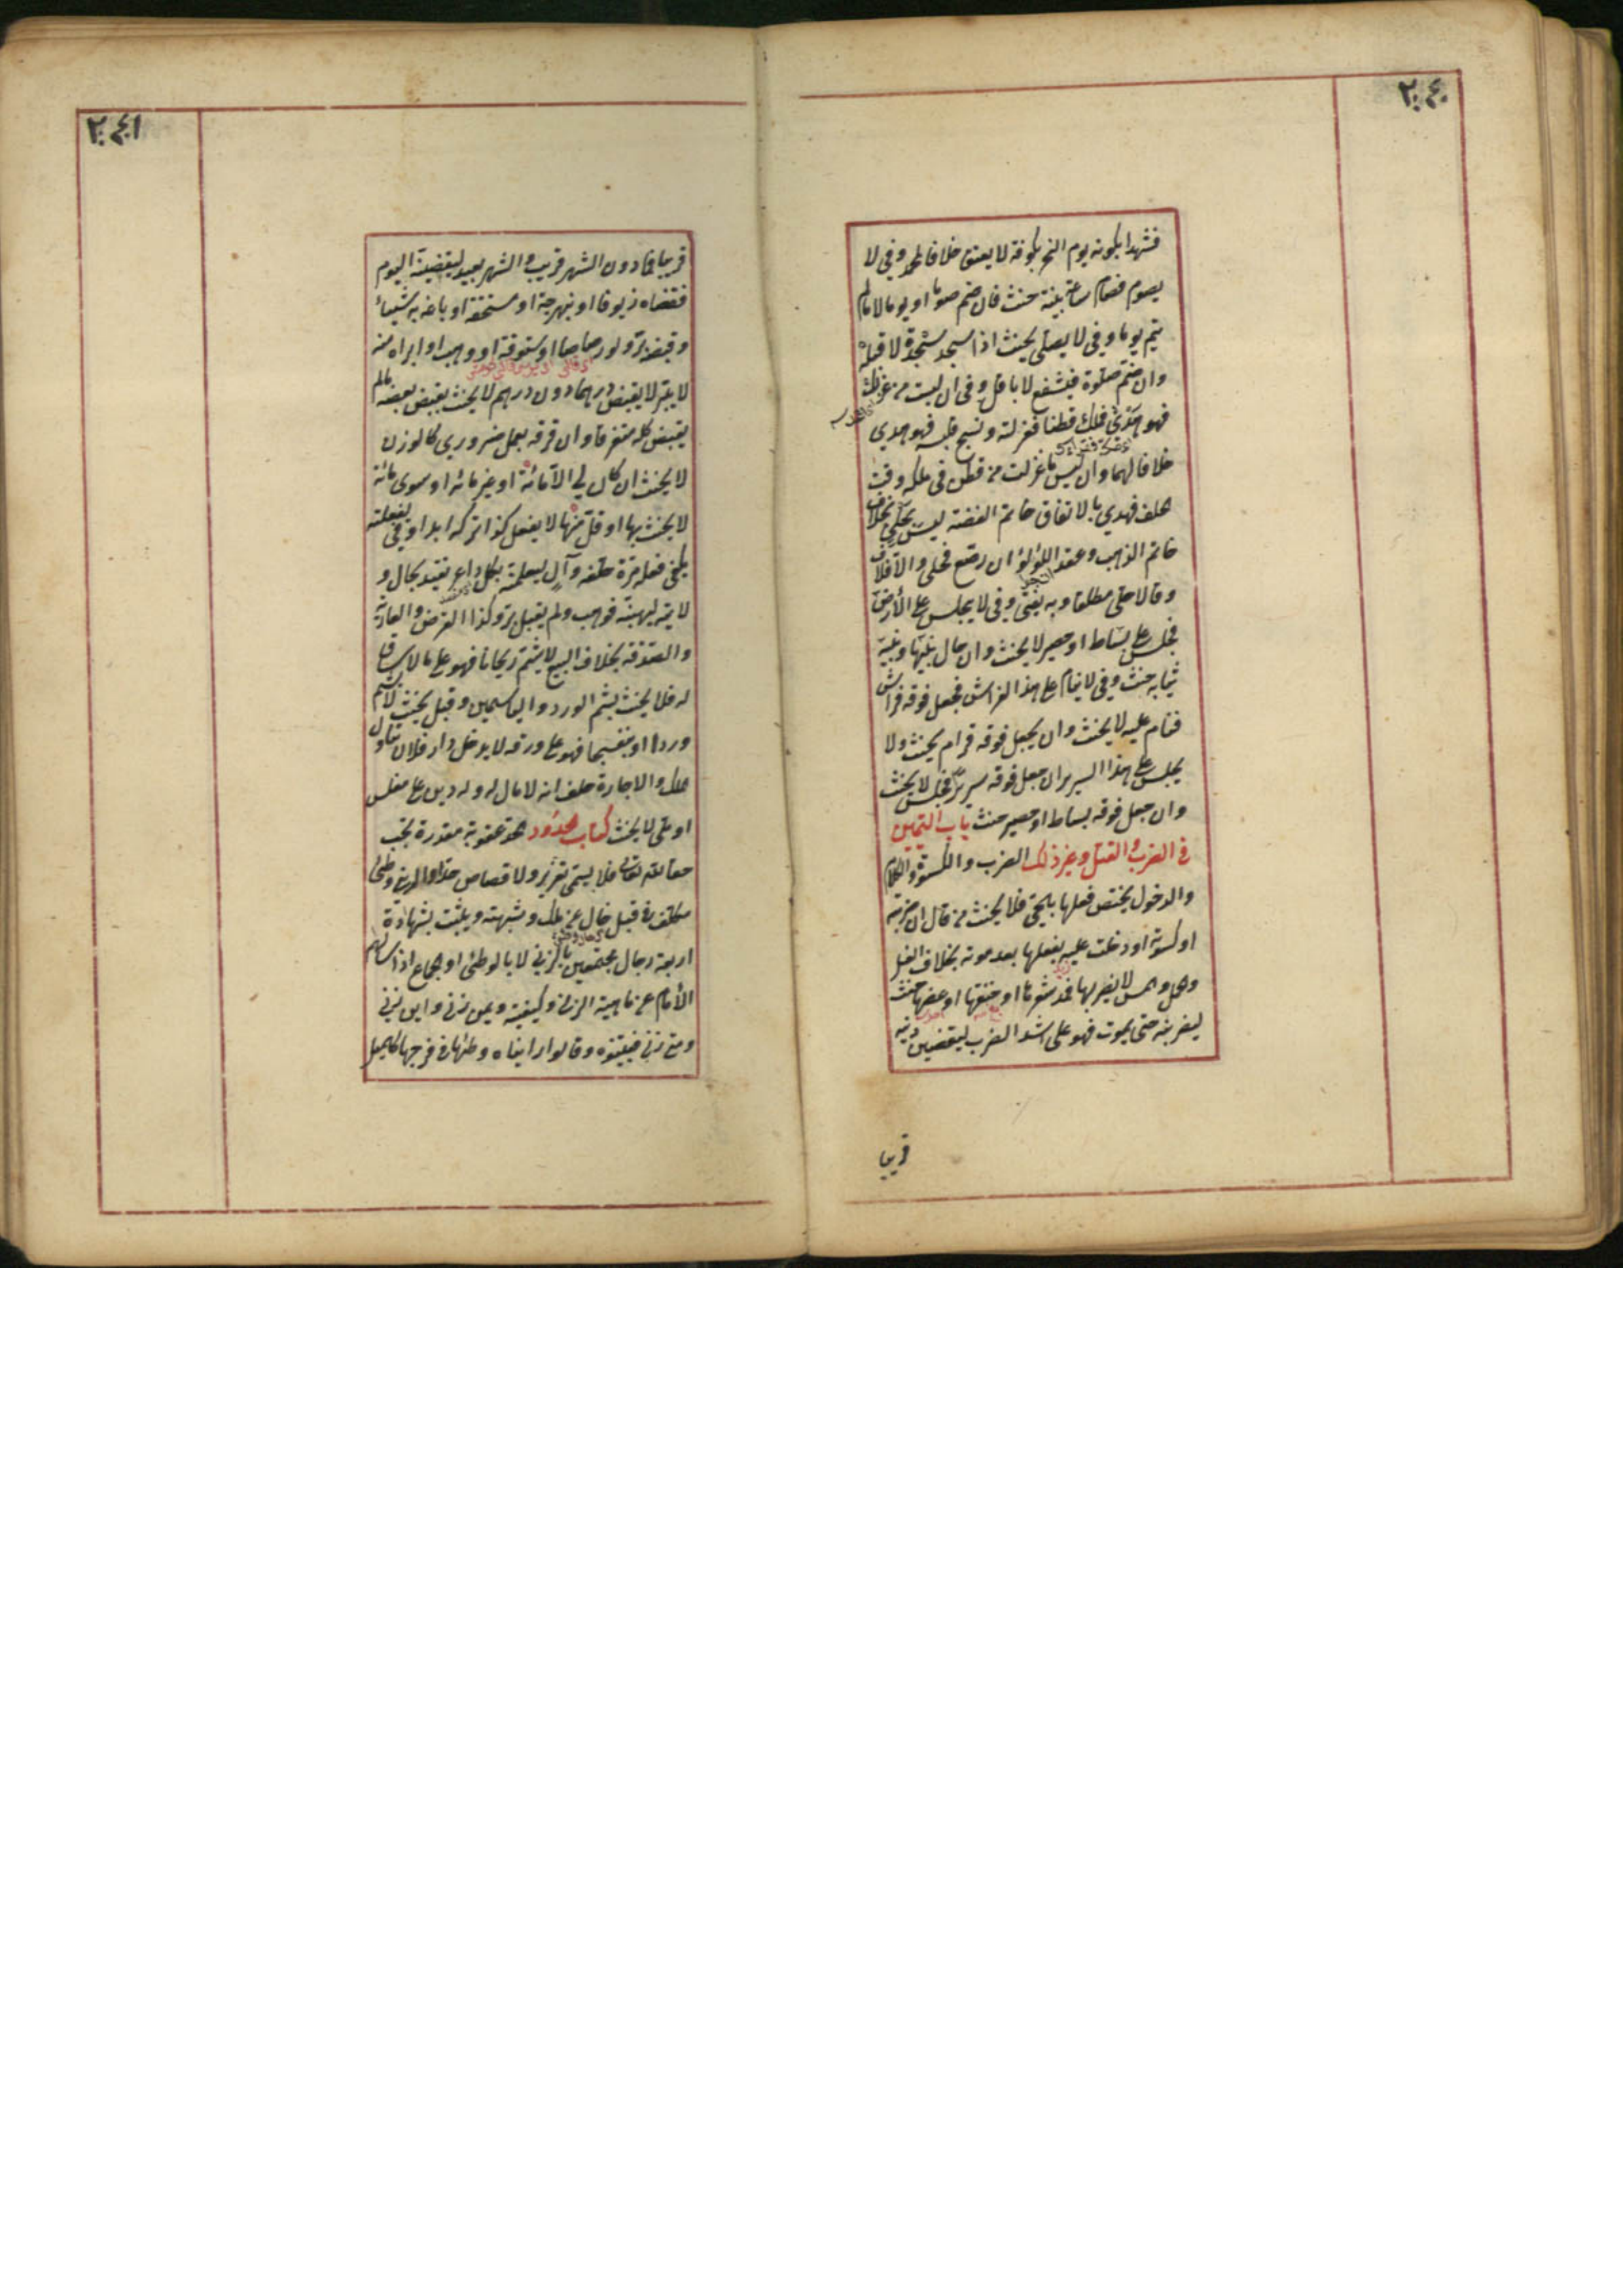 ٢٤٠
فشهدا بكونه يوم النحر بكوفة لا يعتق خلافا لمحمد وفي لا
يصوم فصام ساعة بنية حنث فان ضم صوما او يوما لا ما لم
يتم يوما وفي لا يصلي يحنث اذا سجد سجدة لا قبله
وان ضم صلوة فبشفع لا باقل وفي ان لبست من غزلك
فهو هدي فملك قطنا فغزلته ونسج فلبس فهو هدي
خلافا لهما وان لبس ما غزلت من قطن في ملكه وقت
حلف فهدي بالاتفاق خاتم الفضة ليس بحلي بخلاف
خاتم الذهب وعقد اللؤلؤ ان رصع فحلي والا فلا
وقالا حلي مطلقا وبه يفتى وفي لا يجلس على الأرض
فجلس على بساط او حصير لا يحنث وان حال بينها وبينه
ثيابه حنث وفي لا ينام على هذا الفراش فجعل فوقه فراش
فنام عليه لا يحنث وان يجعل فوقه قرام يحنث ولا
يجلس على هذا السرير ان جعل فوقه سرير فجلس لا يحنث
وان جعل فوقه بساط او حصير حنث باب اليمين
في الضرب والقتل وغير ذلك الضرب والكسوة والكلام
والدخول يختص فعلها بالحي فلا يحنث من قال ان ضربته
او كسوته او دخلت عليه بفعلها بعد موته بخلاف الغسل
وحمل والمس لا يضربها فمد شعرها او خنقها او عضها حنث
ليضربنه حتى يموت فهو على اشد الضرب ليقضين دينه
قريبا
٢٤١
قريبا فما دون الشهر قريب والشهر بعيد ليقضينه اليوم
فقضاه زيوفا او نبهرجة او مستحقة او باعه به شيئا
وقبضه بر ولو رصاصا او ستوقة او وهب او ابراه منه
لا يبر لا يقبض درهما دون درهم لا يحنث بقبض بعضه ما لم
يقبض كله متفرقا وان فرقه بعمل ضروري كالوزن
لا يحنث ان كان لي الا مائة او غير مائة او سوى مائة
لا يحنث بها او قل منها لا يفعل كذا تركه ابدا وفي ليفعلنه
يكفي فعله مرة حلفه وال ليعلمنه بكل داعر تقيد بحال و
لايته ليهبنه فوهب ولم يقبل بر وكذا القرض والعارية
والصدقة بخلاف البيع لا يشم ريحانا فهو على ما لا ساق
له فلا يحنث بشم الورد والياسمين وقيل يحنث لا يشم
وردا او بنفسجا فهو على ورقه لا يدخل دار فلان تناول
الملك والاجارة حلف انه لا مال له وله دين على مفلس
او ملي لا يحنث كتاب الحدود الحد عقوبة مقدرة تجب
حقا لله تعالى فلا يسمى تعزير ولا قصاص حدا والزنى وطئ
مكلف في قبل خال عن ملك وشبهته ويثبت بشهادة
اربعة رجال مجتمعين بالزنى لا بالوطئ او الجماع اذا سالهم
الأمام عن ماهية الزنى وكيفيته وبمن زنى واين زنى
ومتى زنى فبينوه وقالوا راينا وطئها في فرجها كالميل